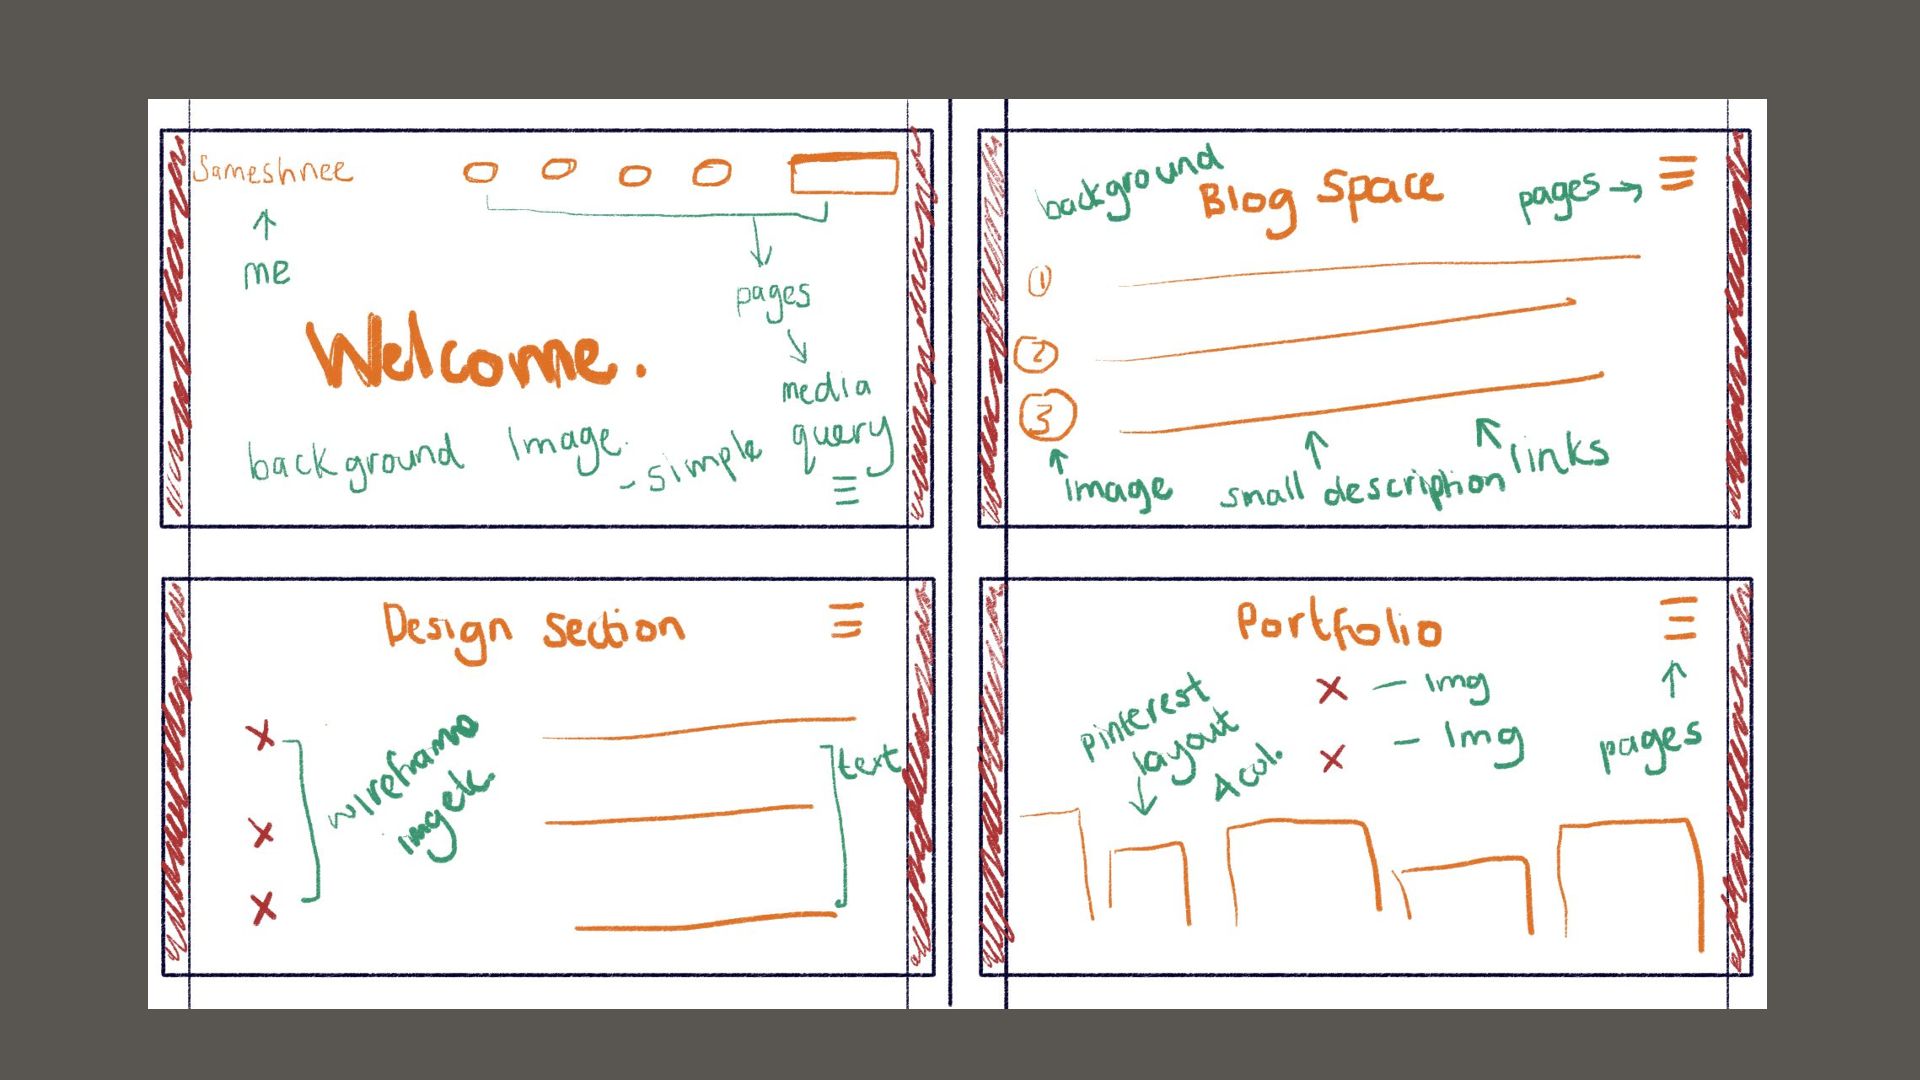 Sameshnee
me
pages
Welcome.
media
query
background Image.
- simple
background
Blog Space
pages
1
2
3
Image
small description
links
Design Section
text
Portfolio
pinterest
layout
4 col.
- Img
- Img
pages